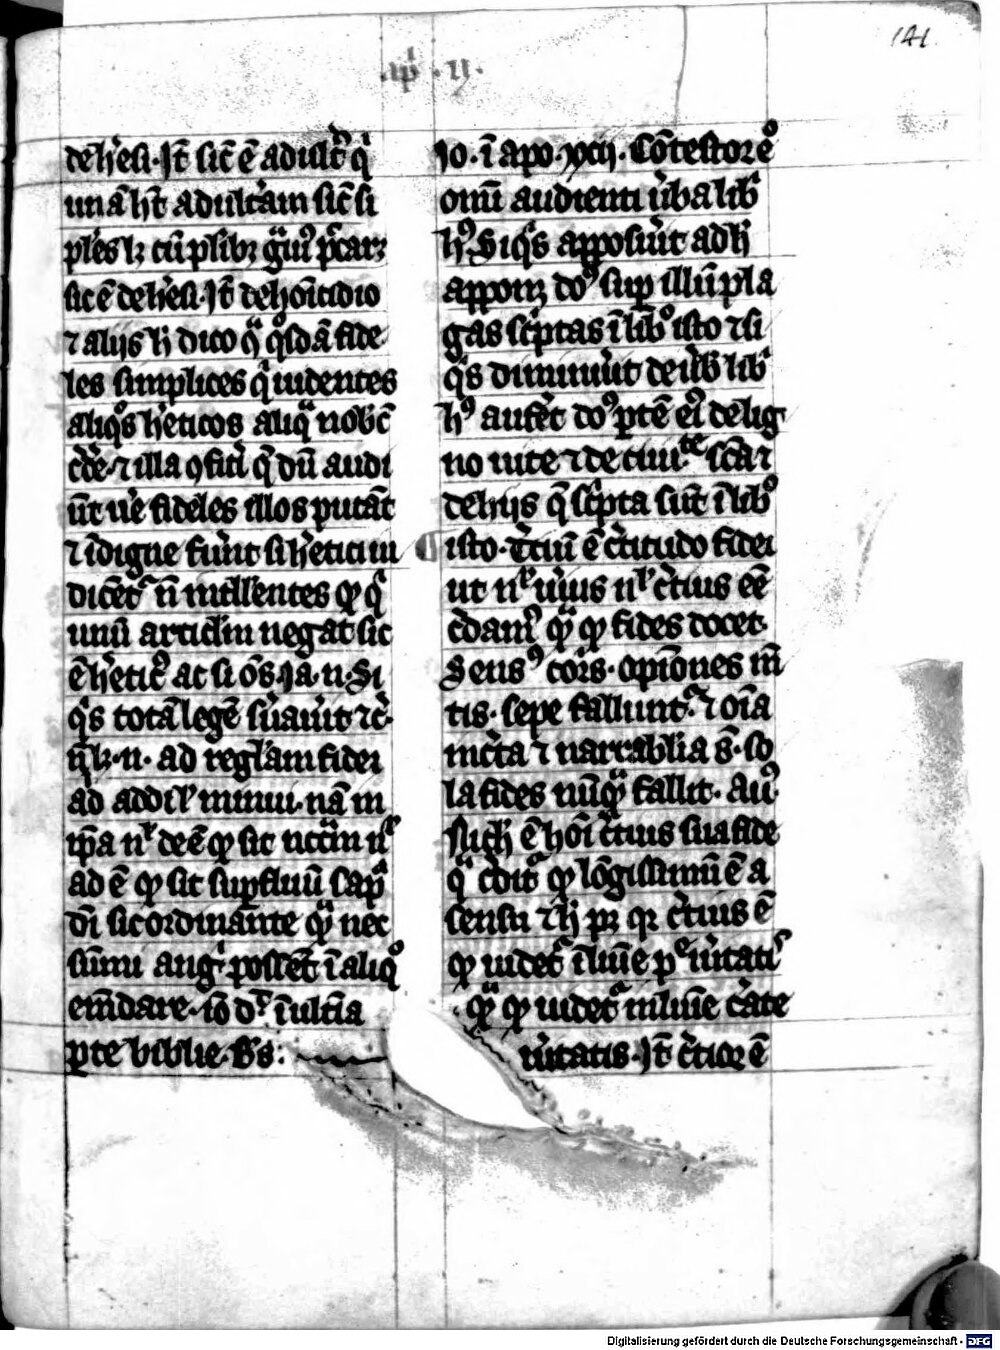 141
de h'esi · It̄ sic̄ ē adult' qͥ
unā hꝫ adult'am sic̄ si
pl'es lꝫ cū plsibꝫ gͣui9 pͨcarꝫ
sic ē de h'esi · It̄ de homicidio
⁊ alijs h' dico qͣ qͦsdā fide
les simplices qͥ uidentes
aliqͦs h'eticos aliqͣ nob̄
⁊ illa ꝯfici qͥ dū audi
ūt u'e fideles illos putāt
⁊ īdigne fu'int si h'etici iu
dicēt' n̄ intell'entes qͦ qͥ
unū articl'm negat sic
ē h'etic9 ac si oēs · Ja · ii · Si
qͥs totā legē s'uau'it ⁊c̄ ·
ad regl'am fidei
nā in
ip̄a deē qͦ sit
ad ē qͦ sit suꝑfluū sap̄
di sic ordinante qͣ nec
sūmi ang'i possēt ī aliqͦ
em̄dare · iō dr̄ ī ult'ia
ꝑte biblie ·
Jo · ī apo · xxii · Cōtestor eͦ
om̄i audienti u'ba lib'
h9 · Si qͥs apposu'it ad h'
apponꝫ do9 suꝑ illū pla
gas sc'ptas ī libͦ isto ⁊ si
qͥs diminu'it de u'b lib'
h9 aufet do9 ꝑtē ei9 de lig
no uite ⁊ de ciui.te sc̄a ⁊
de hijs q̄ sc'pta sūt ī libͦ
isto · T'ciū ē c'titudo fidei
ut nl' u'ius nl' c'tius eē
c'dam9 qͣ qͦ fides docet
Sens9 cor's · opiniones m̄
tis · sepe fallunt · ⁊ oīa
inc'ta ⁊ narrabilia s̄ · so
la fides nūqͣ fallit · Au9
ē hōi c'tius sua fide
qͣ qͦ lōgissimū ē a
sensu ⁊ h' pꝫ qꝛ c'tius ē
qͦ uidet' ī lum̄e pͥ u'itatis
qͣ qͦ uidet' in lum̄e c'ate
u'itatis · It̄ c'tior ē
Digitalisierung gefördert durch die Deutsche Forschungsgemeinschaft - DFG